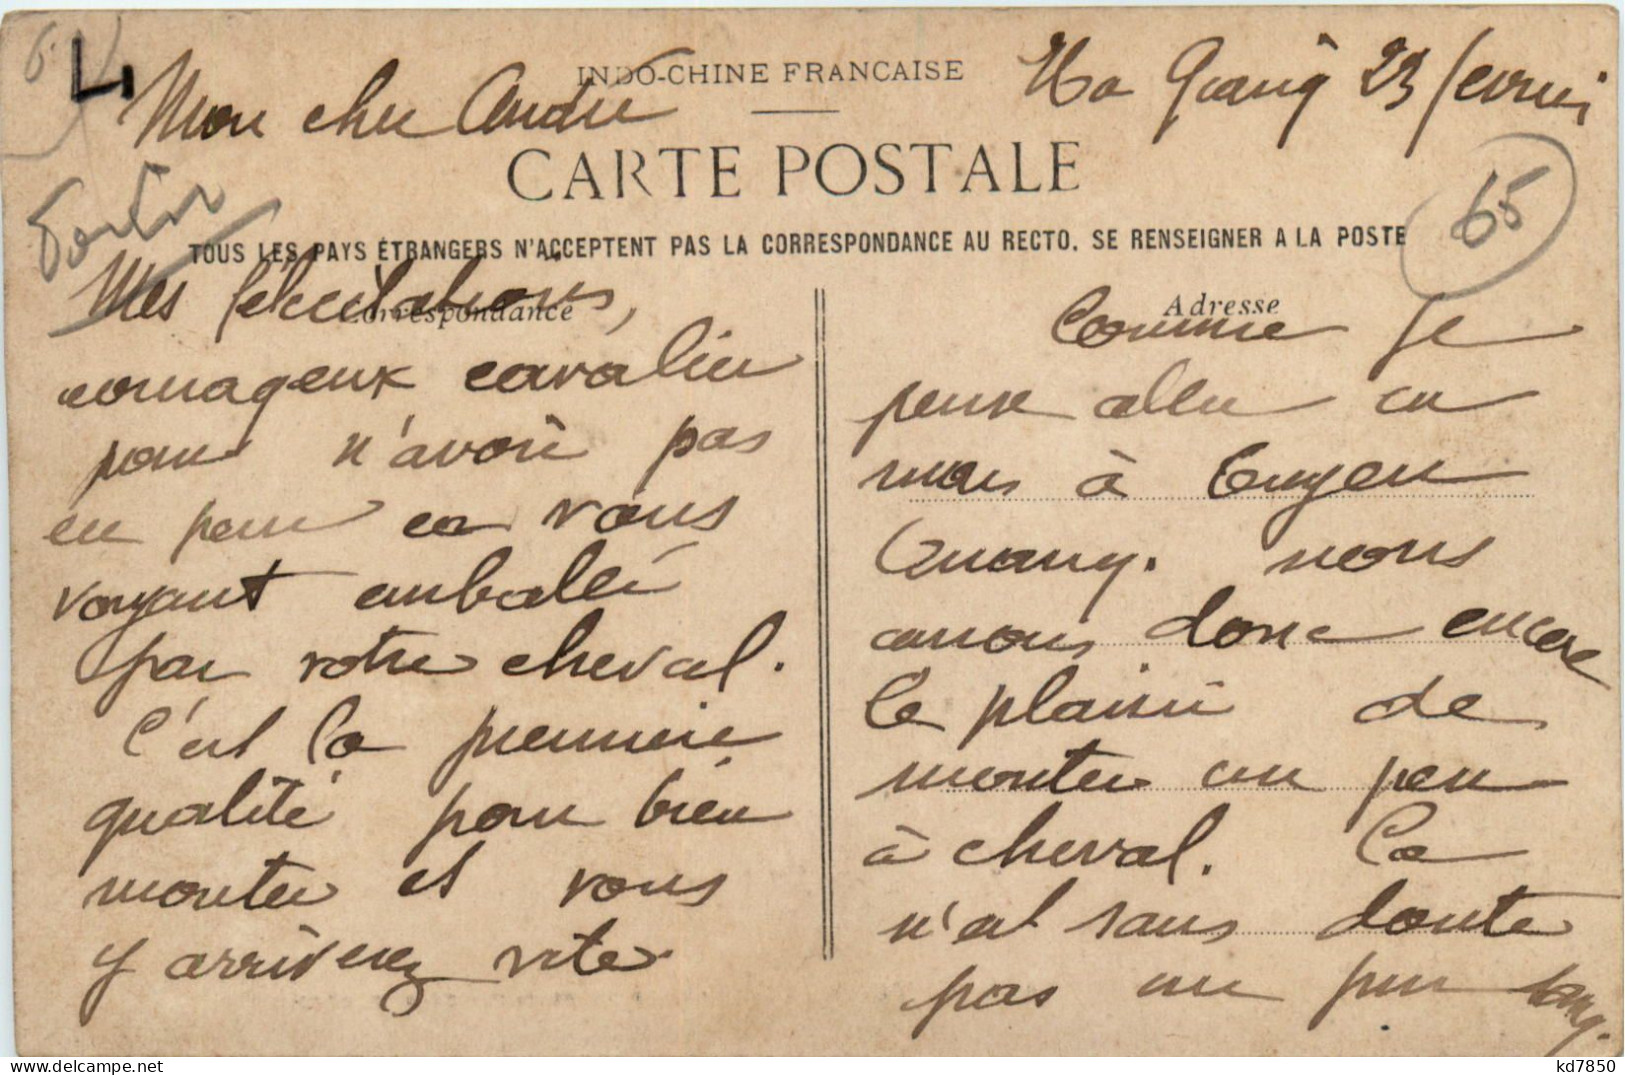 INDO-CHINE FRANCAISE
Ha Giang 23 fevrier
Mon cher André
CARTE POSTALE
65
TOUS LES PAYS ÉTRANGERS N'ACCEPTENT PAS LA CORRESPONDANCE AU RECTO. SE RENSEIGNER A LA POSTE
Correspondance
Mes félicitations,
courageux cavalier
pour n'avoir pas
eu peur en vous
voyant emballé
par votre cheval.
C'est la première
qualité pour bien
monter et vous
y arriverez vite.
Adresse
Comme je
pense aller en
mars à Tuyen
Quang. nous
aurons donc encore
le plaisir de
monter un peu
à cheval. Ca
n'est sans doute
pas un pur sang.
kd7850